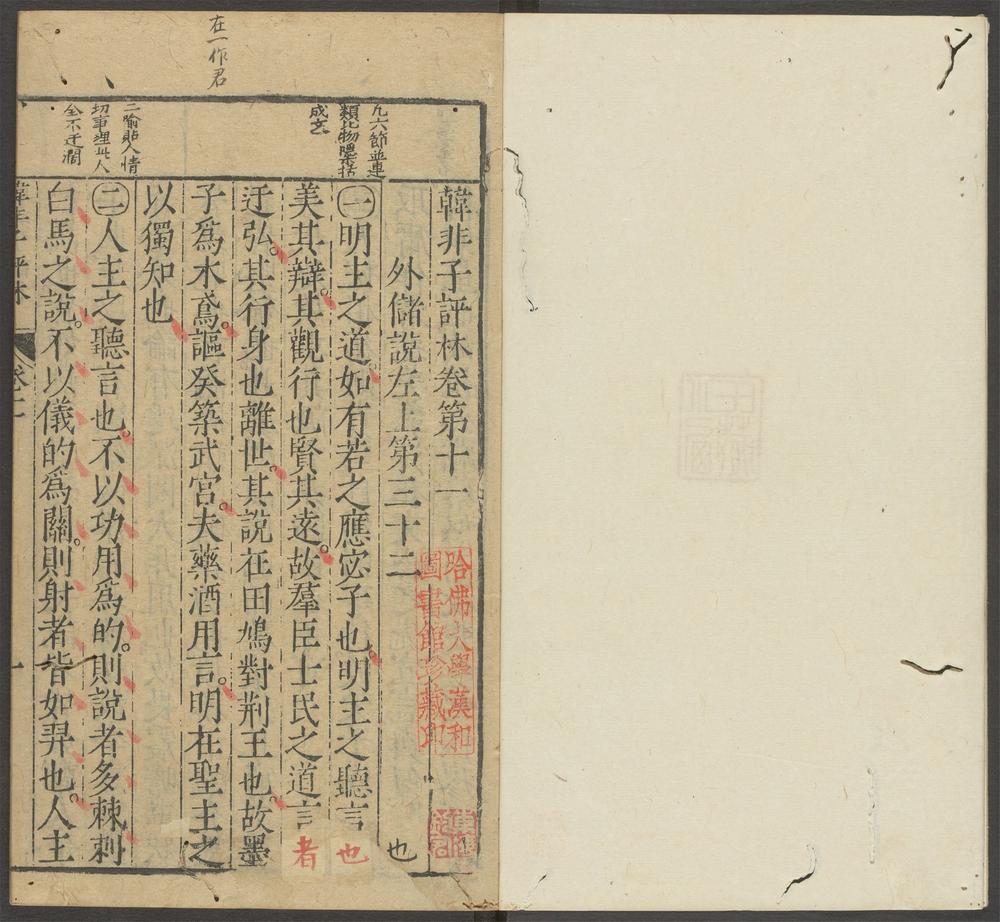 在一作君
凡六節並連
類比物檃括
成文
二喻貼人情
切事理此人
全不迂濶
韓非子評林卷第十一
外儲說左上第三十二
㊀明主之道如有若之應宓子也明主之聽言也
美其辯其觀行也賢其遠故羣臣士民之道言者
迂弘其行身也離世其說在田鳩對荆王也故墨
子爲木鳶謳癸築武宮夫藥酒用言明在聖主之
以獨知也
㊁人主之聽言也不以功用爲的則說者多棘刺
白馬之說不以儀的爲關則射者皆如羿也人主
韓非子評林
卷十一
一
也
哈佛大學漢和
圖書館珍藏印